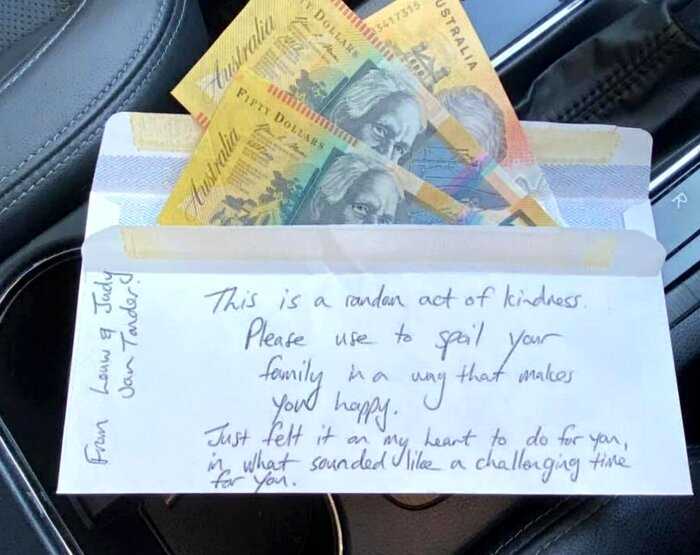 Australia
FIFTY DOLLARS
AUSTRALIA
Australia
FIFTY DOLLARS
This is a random act of kindness.
Please use to spoil your
family in a way that makes
you happy.
Just felt it on my heart to do for you,
in what sounded like a challenging time
for you.
From Louw & Judy
Van Tonder!
R